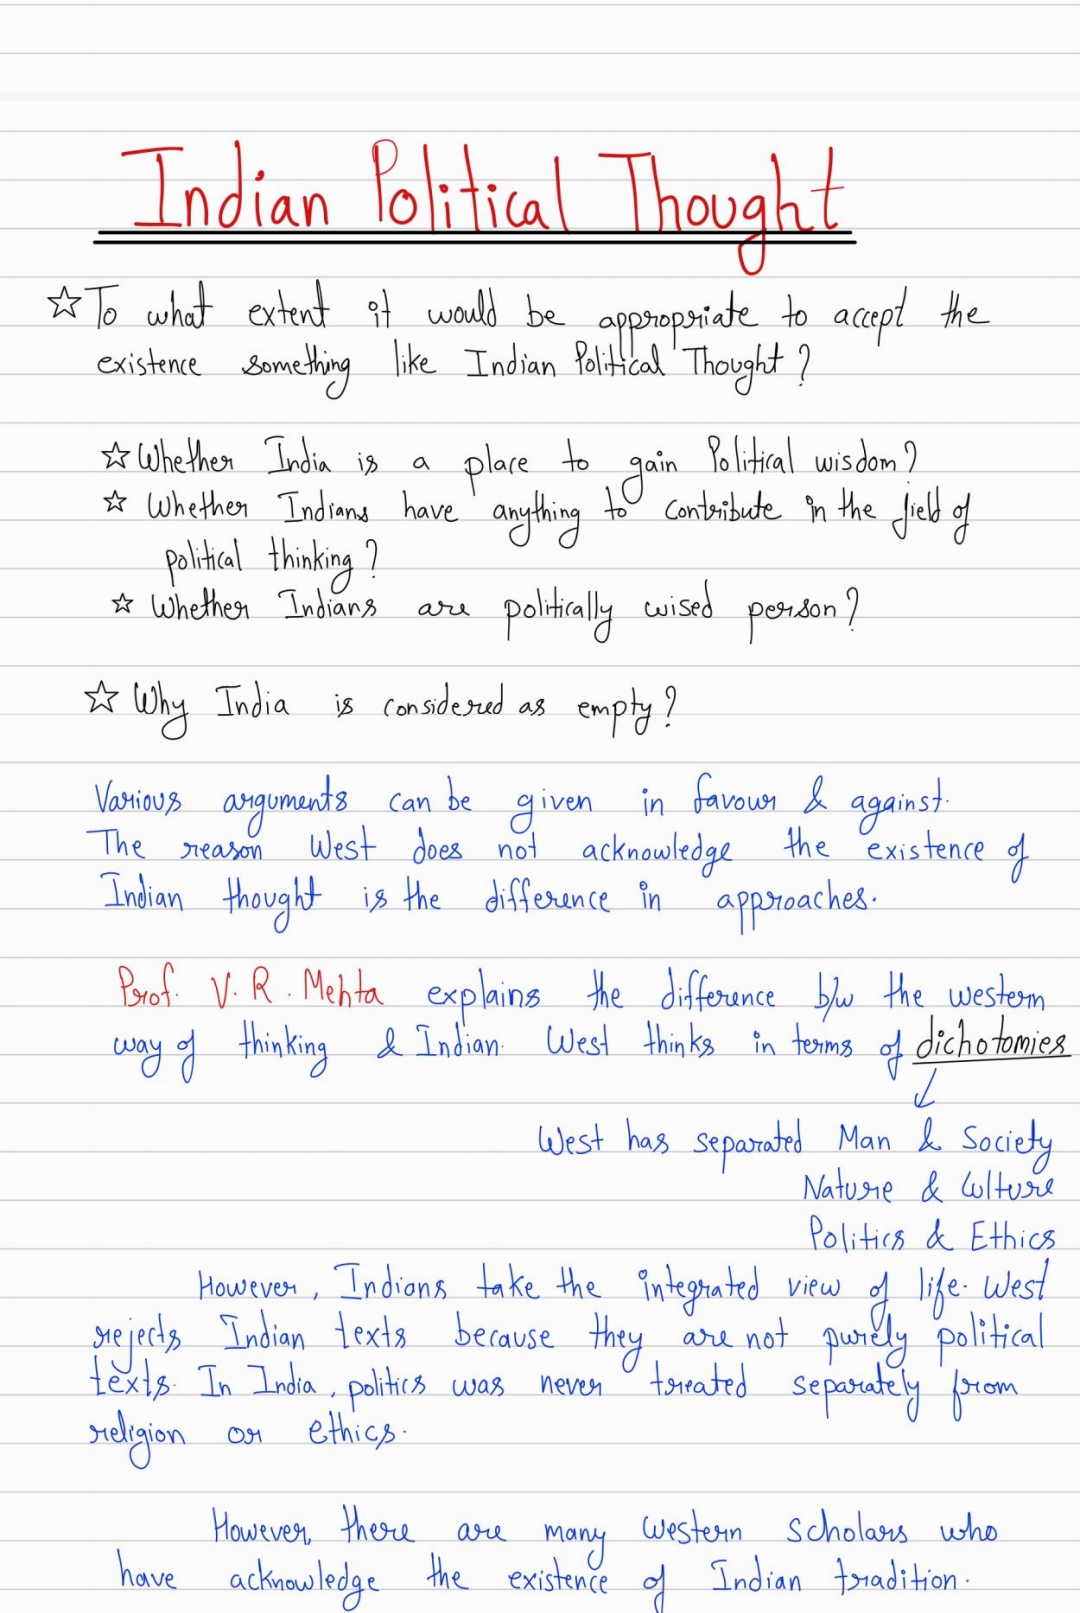 Indian Political Thought
☆ To what extent it would be appropriate to accept the
existence something like Indian Political Thought ?
☆ Whether India is a place to gain Political wisdom ?
☆ Whether Indians have anything to contribute in the field of
political thinking ?
☆ Whether Indians are politically wised person ?
☆ Why India is considered as empty ?
Various arguments can be given in favour & against.
The reason West does not acknowledge the existence of
Indian thought is the difference in approaches.
Prof. V. R. Mehta explains the difference b/w the western
way of thinking & Indian. West thinks in terms of dichotomies
↓
West has separated Man & Society
Nature & Culture
Politics & Ethics
However, Indians take the integrated view of life. West
rejects Indian texts because they are not purely political
texts. In India, politics was never treated separately from
religion or ethics.
However, there are many Western Scholars who
have acknowledge the existence of Indian tradition.